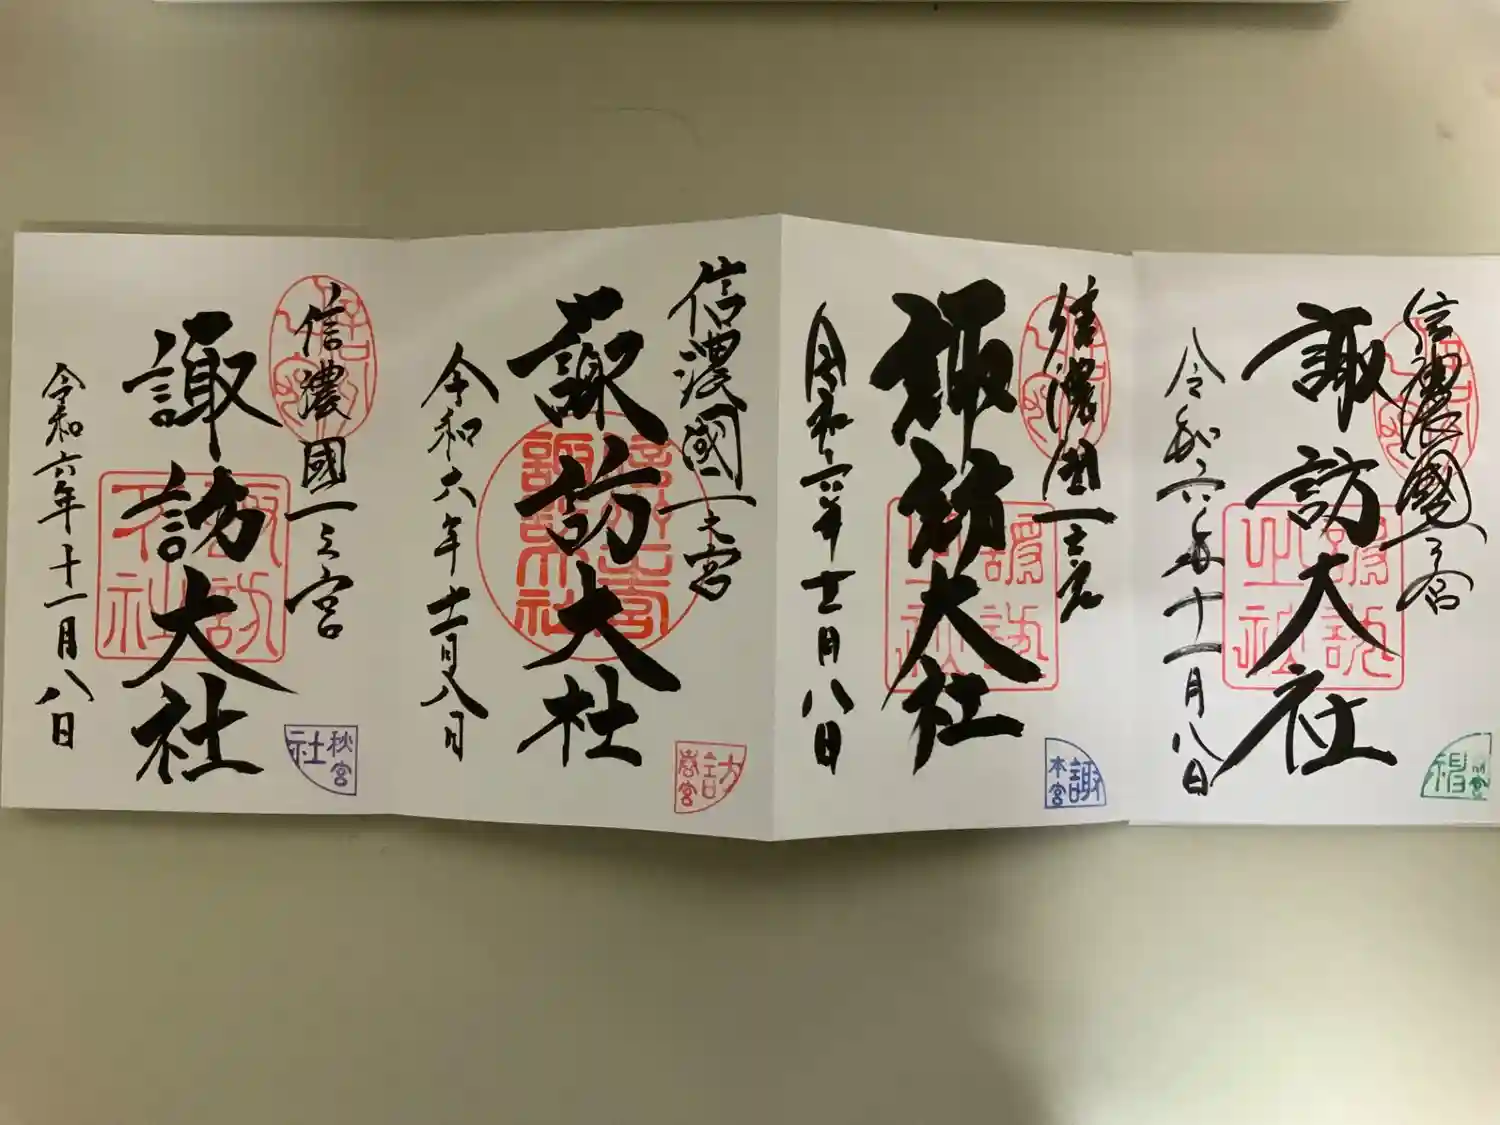 信濃國一之宮
諏訪大社
令和六年十一月八日
諏訪
本宮
信濃國一之宮
諏訪大社
令和六年十一月八日
諏
本宮
信濃國一之宮
諏訪大社
令和六年十一月八日
訪
春宮
信濃國一之宮
諏訪大社
令和六年十一月八日
秋宮
社